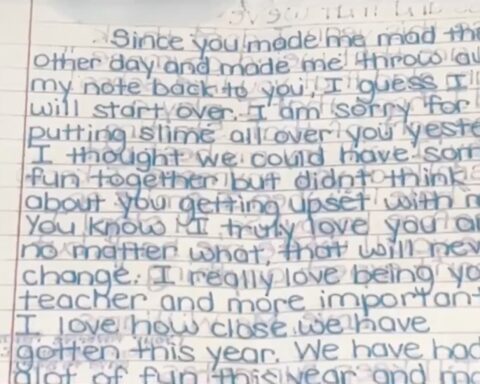 Since you made me mad thi
other day and made me throw au
my note back to you, I guess I
will start over. I am sorry for
putting slime all over you yeste
I thought we could have som
fun together but didnt think
about you getting upset with m
You know I truly love you an
no matter what, that will nev
change. I really love being yo
teacher and more important
I love how close we have
gotten this year. We have had
alot of fun this year and